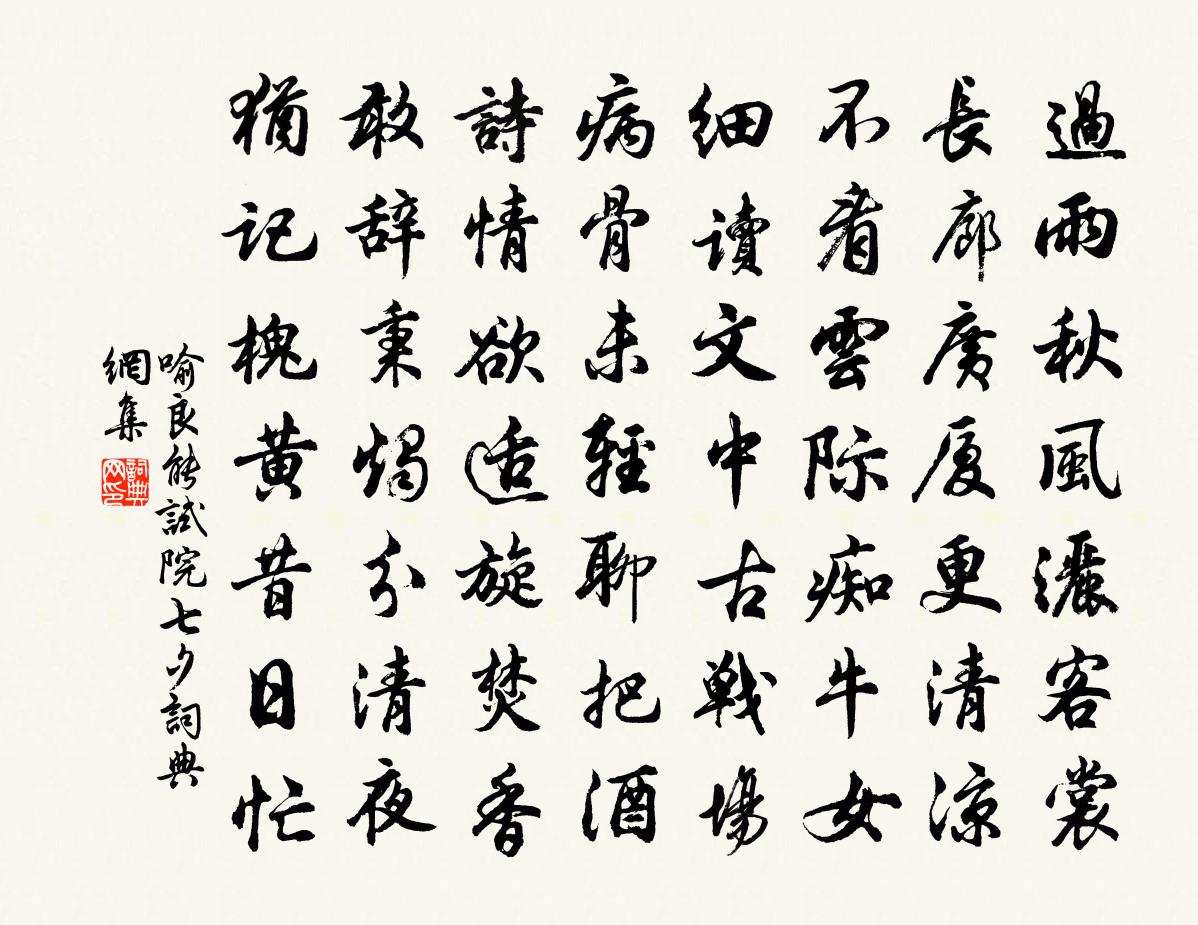 過雨秋風灑客裳
長廊廣厦更清凉
不看雲际痴牛女
细读文中古戦場
病骨未輕聊把酒
詩情欲适旋焚香
敢辞秉燭分清夜
猶记槐黄昔日忙
喻良能試院七夕詞典
網集
詞典网印